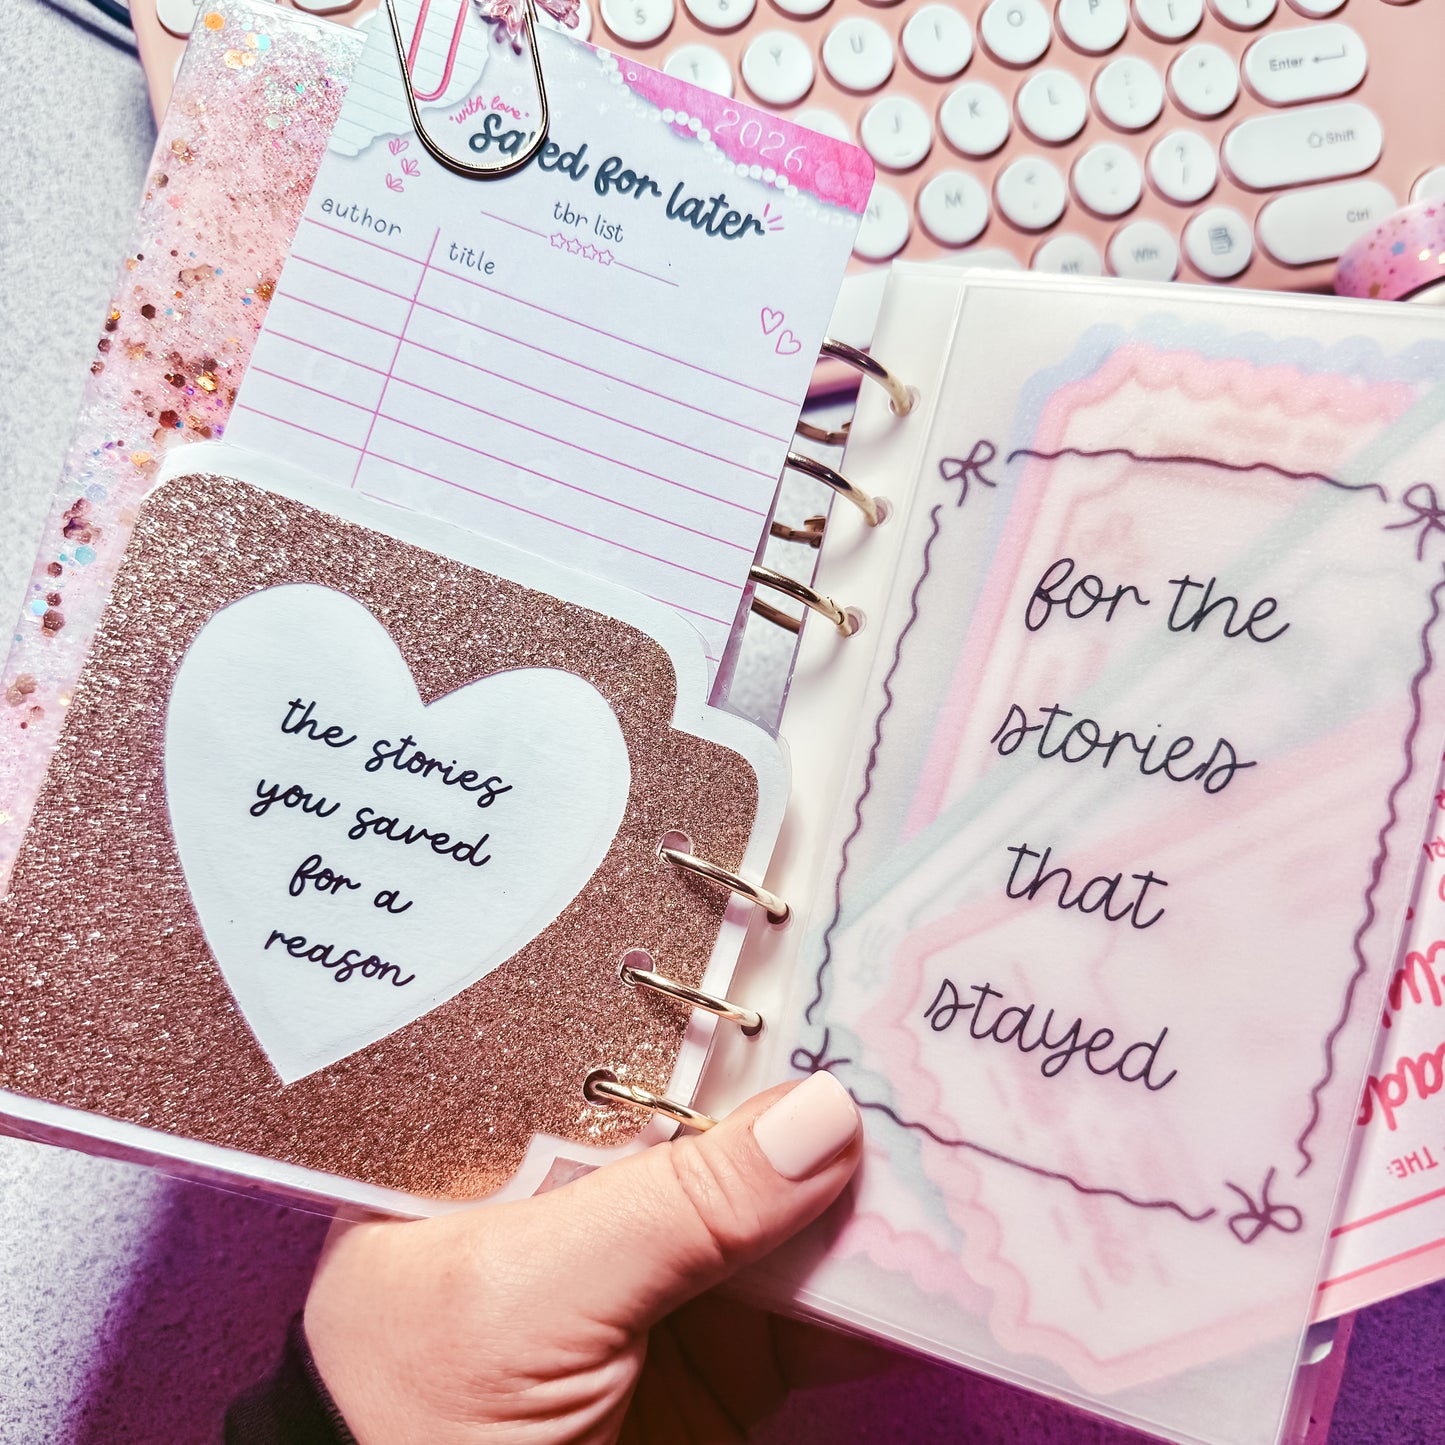 "with love"
Saved for later
2026
tbr list
author
title
the stories
you saved
for a
reason
for the
stories
that
stayed
THE:
5
T
Y
U
I
O
P
J
K
L
N
M
Enter
Shift
Ctrl
Alt
Win